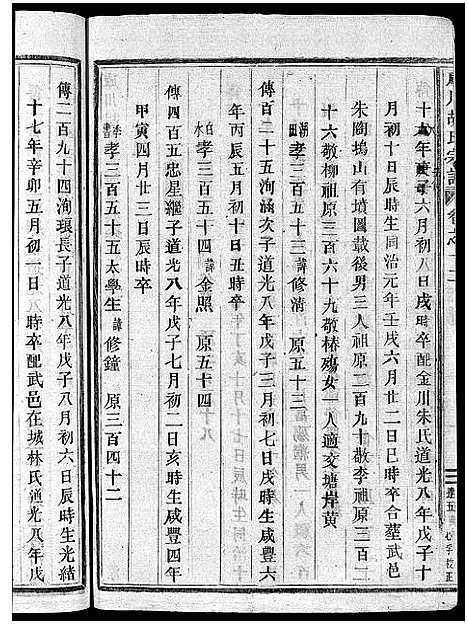 川胡氏宗譜 卷之十二
十六年庚子六月初八日戌時卒配金川朱氏道光八年戊子十
月初十日辰時生同治元年壬戌六月廿二日巳時卒合墓武邑
朱陶塢山有墳圖載後男三人祖原二百九十敬李祖原三百二
十六敬柳祖原三百六十九敬椿殤女一人適交塘岸黃
湖田 孝三百五十三 諱 修清 原五十三
傳百二十五洵涵次子道光八年戊子三月初七日戌時生咸豐六
年丙辰五月初十日丑時卒
白水 孝三百五十四 諱 金照 原五十四
傳四百五忠星繼子道光八年戊子七月初二日亥時生咸豐四年
甲寅四月廿三日辰時卒
孝三百五十五太學生 諱 修鐘 原三百四十二
傳二百九十四洵琅長子道光八年戊子八月初六日辰時生光緒
十七年辛卯五月初一日 時卒配武邑在城林氏道光八年戊